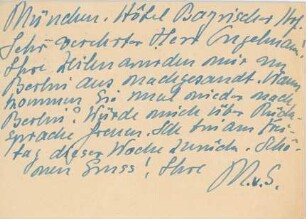 München. Hôtel Bayrischer Hof
Sehr verehrter Herr Engelmann.
Ihre Zeilen wurden mir von
Berlin aus nachgesandt. Wann
kommen Sie mal wieder nach
Berlin? Würde mich über Rück-
sprache freuen. Ich bin am Frei-
tag dieser Woche zurück. Schö-
nen Gruss! Ihre
M.v.S.